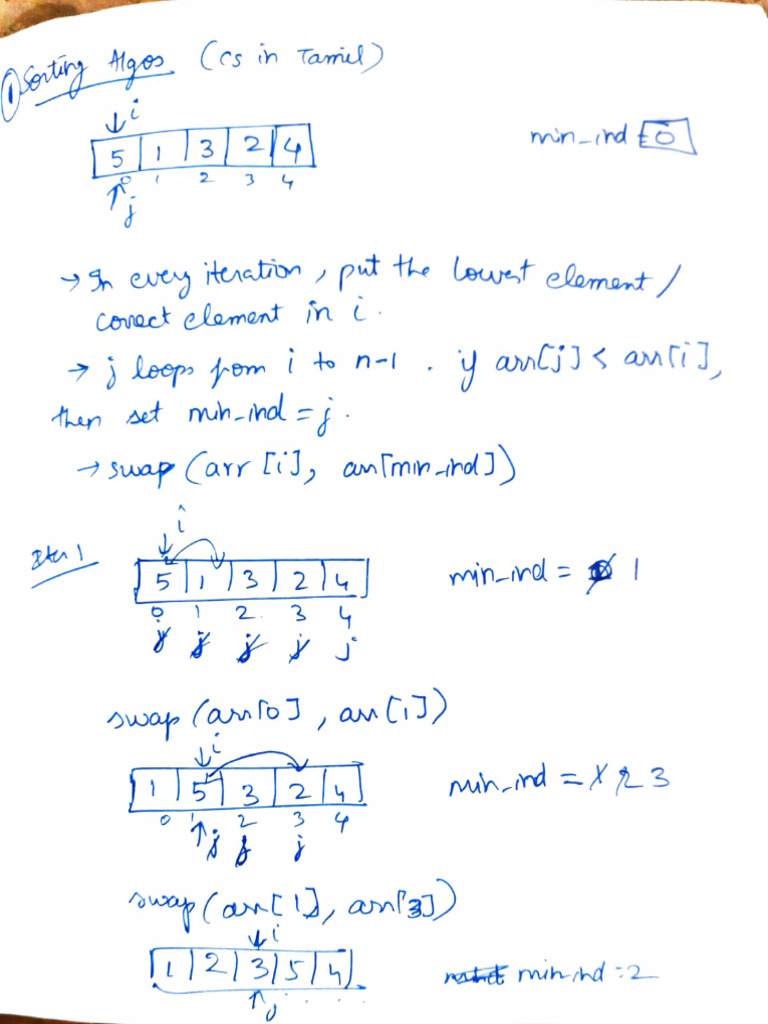 ① Sorting Algos (CS in Tamil)
↓ i
5 1 3 2 4 min_ind = 0
0 1 2 3 4
↑ j
→ In every iteration, put the lowest element /
correct element in i.
→ j loops from i to n-1. if arr[j] < arr[i],
then set min_ind = j.
→ swap (arr [i], arr[min_ind])
i
Iter 1
5 1 3 2 4 min_ind = 0 1
0 1 2 3 4
j j j j j
swap (arr[0], arr[1])
i
1 5 3 2 4 min_ind = 1 2 3
0 1 2 3 4
↑ j j j
swap (arr[1], arr[3])
↓ i
1 2 3 5 4 min_ind = 2
↑ j